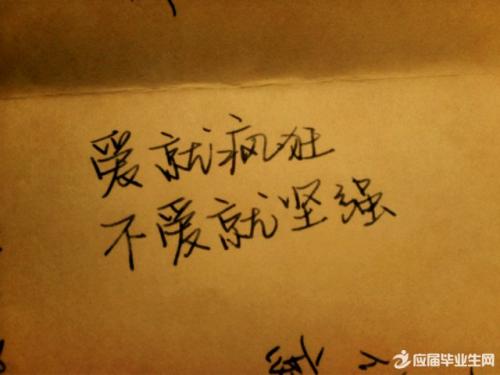 爱就疯狂
不爱就坚强
应届毕业生网